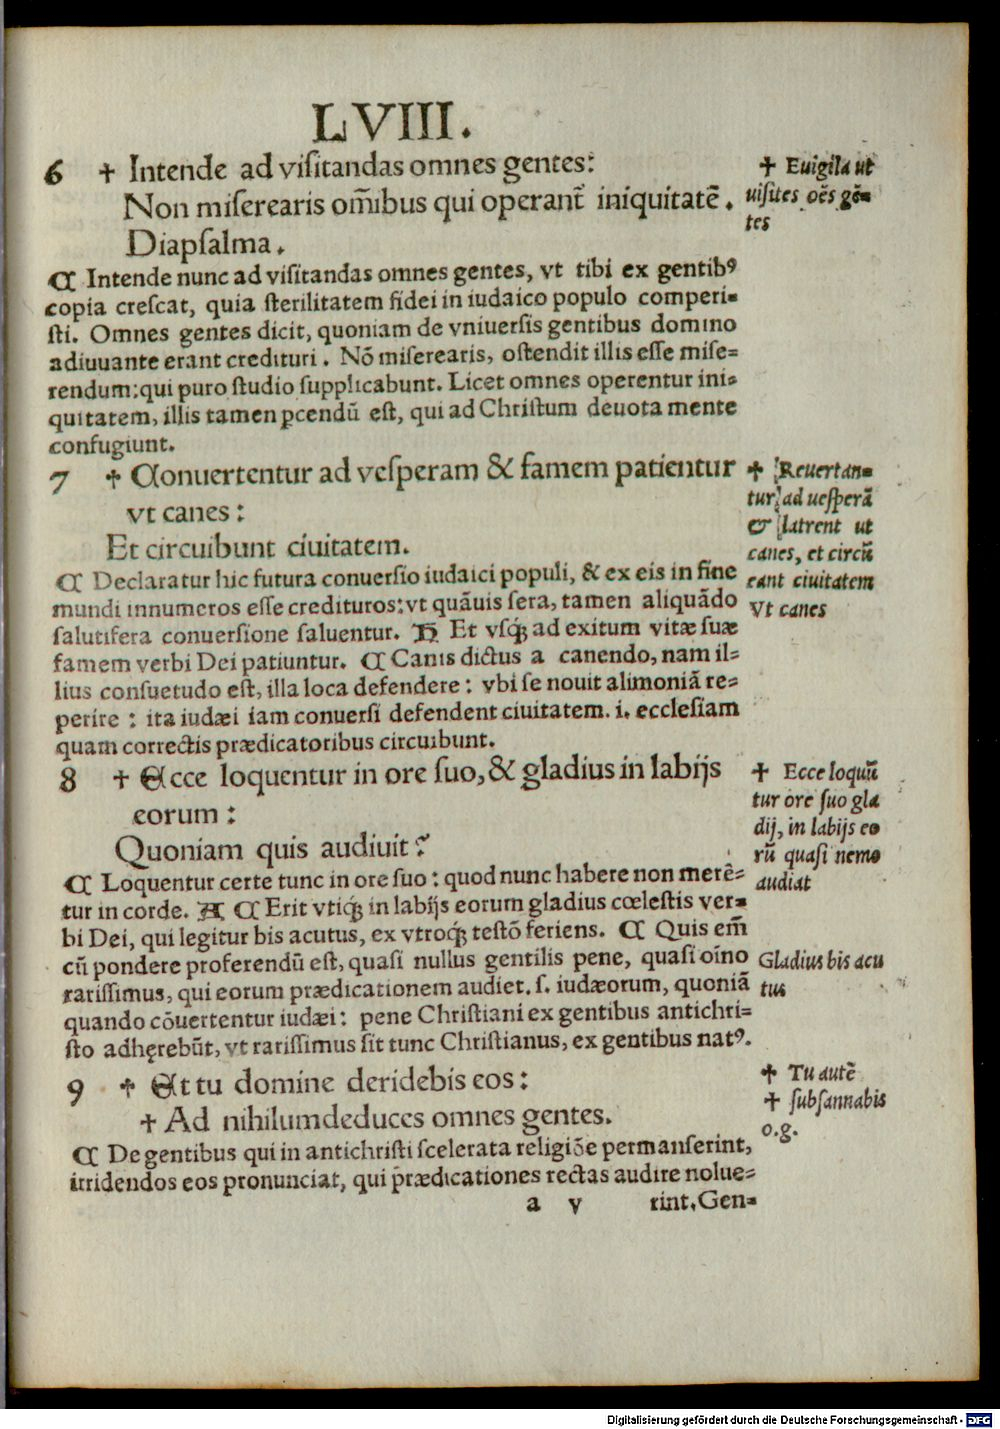 LVIII.
6 ✝ Intende ad viſitandas omnes gentes:
Non miſerearis om̄ibus qui operant̄ iniquitatē.
Diapſalma.
¶ Intende nunc ad viſitandas omnes gentes, vt tibi ex gentibꝰ
copia creſcat, quia ſterilitatem fidei in iudaico populo comperi-
ſti. Omnes gentes dicit, quoniam de vniuerſis gentibus domino
adiuuante erant credituri. Nō miſerearis, oſtendit illis eſſe miſe=
rendum: qui puro ſtudio ſupplicabunt. Licet omnes operentur ini-
quitatem, illis tamen ꝑcendū eſt, qui ad Chriſtum deuota mente
confugiunt.
✝ Euigila ut
uiſites oēs gē-
tes
7 ✝ Conuertentur ad veſperam & famem patientur
vt canes:
Et circuibunt ciuitatem.
¶ Declaratur hic futura conuerſio iudaici populi, & ex eis in fine
mundi innumeros eſſe credituros: vt quāuis ſera, tamen aliquādo
ſalutifera conuerſione ſaluentur. H Et vſq́ꝫ ad exitum vitæ ſuæ
famem verbi Dei patiuntur. ¶ Canis dictus a canendo, nam il=
lius conſuetudo eſt, illa loca defendere: vbi ſe nouit alimoniā re=
perire: ita iudæi iam conuerſi defendent ciuitatem. i. eccleſiam
quam correctis prædicatoribus circuibunt.
✝ Reuertan-
tur ad ueſperā
& latrent ut
canes, et circū
eant ciuitatem
Vt canes
8 ✝ Ecce loquentur in ore ſuo, & gladius in labijs
eorum:
Quoniam quis audiuit?
¶ Loquentur certe tunc in ore ſuo: quod nunc habere non merē=
tur in corde. A ¶ Erit vtiq́ꝫ in labijs eorum gladius cœleſtis ver-
bi Dei, qui legitur bis acutus, ex vtroq́ꝫ teſtō feriens. ¶ Quis em̄
cū pondere proferendū eſt, quaſi nullus gentilis pene, quaſi oīno
rariſſimus, qui eorum prædicationem audiet. ſ. iudæorum, quoniā
quando cōuertentur iudæi: pene Chriſtiani ex gentibus antichri=
ſto adhęrebūt, vt rariſſimus ſit tunc Chriſtianus, ex gentibus natꝰ.
✝ Ecce loquū
tur ore ſuo gla
dij, in labijs eo
rū quaſi nemo
audiat
Gladius bis acu
tus
9 ✝ Et tu domine deridebis eos:
✝ Ad nihilumdeduces omnes gentes.
¶ De gentibus qui in antichriſti ſcelerata religiōe permanſerint,
irridendos eos pronunciat, qui p̄rædicationes rectas audire nolue=
✝ Tu autē
✝ ſubſannabis
o.g.
a v rint. Gen-
Digitalisierung gefördert durch die Deutsche Forschungsgemeinschaft - DFG